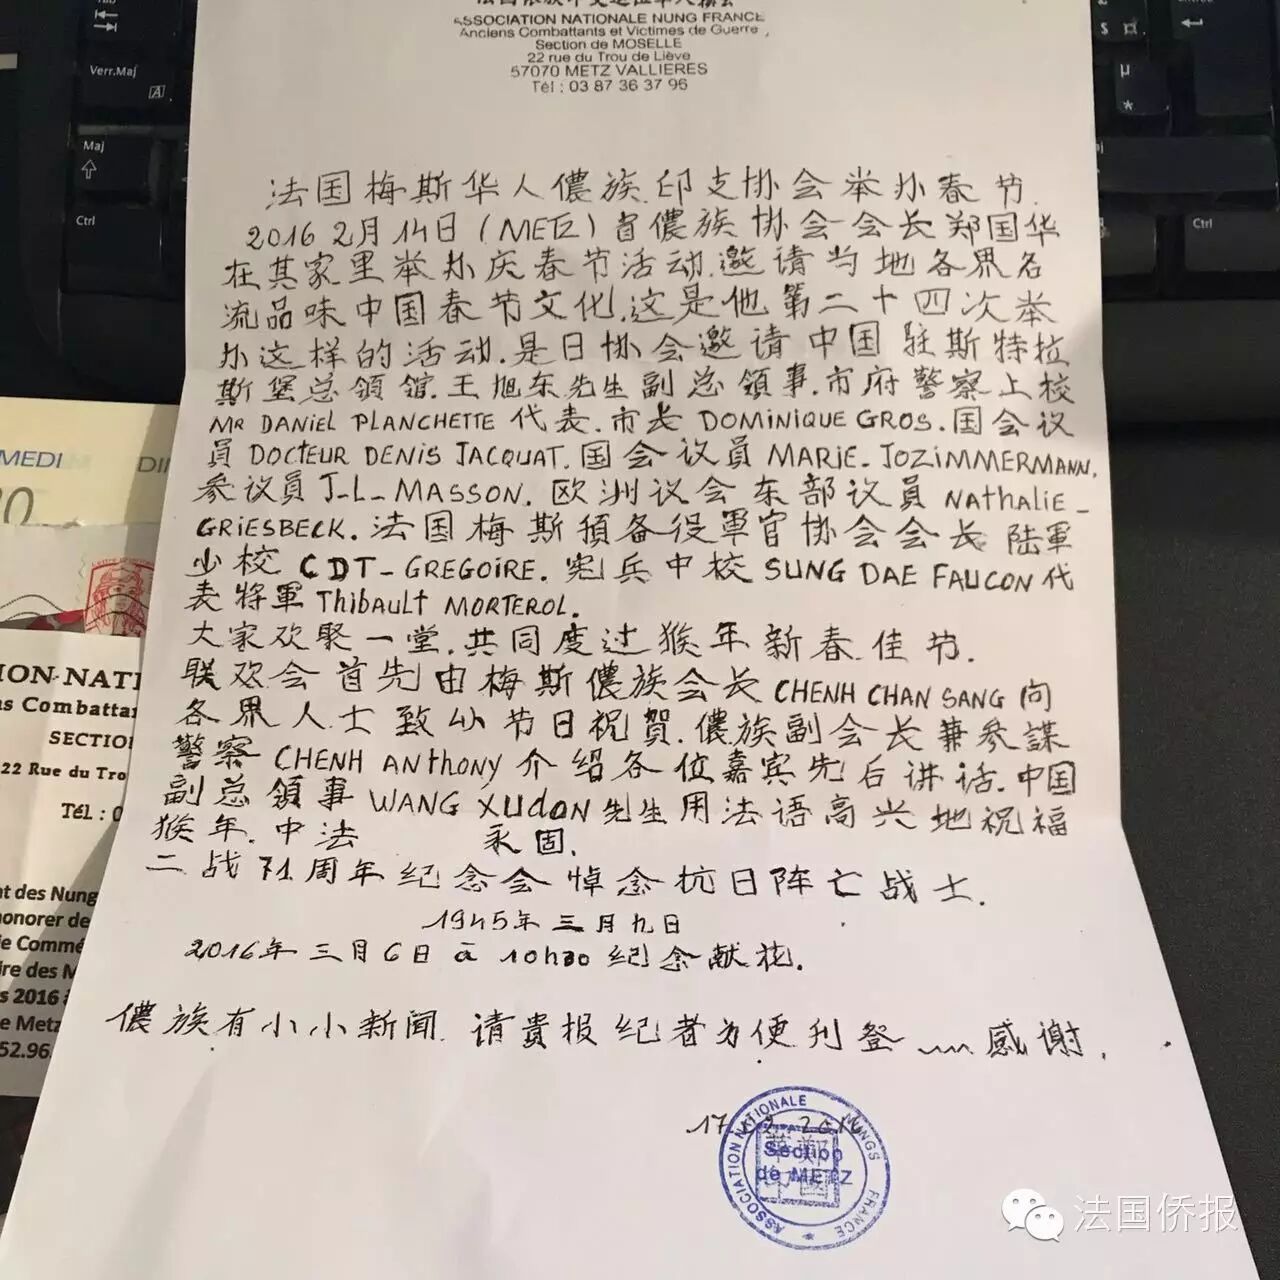 ASSOCIATION NATIONALE NUNG FRANCE
Anciens Combattants et Victimes de Guerre,
Section de MOSELLE
22 rue du Trou de Lièvre
57070 METZ VALLIERES
Tél : 03 87 36 37 96
法国梅斯华人儂族.印支协会举办春节.
2016 2月14日(METZ)首儂族协会会长郑国华
在其家里举办庆春节活动.邀请当地各界名
流品味中国春节文化.这是他第二十四次举
办这样的活动.是日协会邀请中国驻斯特拉
斯堡总領舘.王旭东先生副总領事.市府警察上校
MR DANIEL PLANCHETTE 代表.市长 DOMINIQUE GROS.国会议
員 DOCTEUR DENIS JACQUAT.国会议員 MARIE-JOZIMMERMANN.
参议員 J-L-MASSON.欧洲议会东部议員 NAthALIE-
GRIESBECK.法国梅斯預备役軍官协会会长陆軍
少校 CDT-GREGOIRE.宪兵中校 SUNG DAE FAUCON 代
表将軍 ThibAULT MORTEROL.
大家欢聚一堂.共同度过猴年新春佳节.
联欢会首先由梅斯儂族会长 CHENH CHAN SANG 向
各界人士致以节日祝賀.儂族副会长兼参謀
警察 CHENH ANthONY 介绍各位嘉宾先后讲话.中国
副总領事 WANG XUdON 先生用法语高兴地祝福
猴年.中法 永固.
二战71周年纪念会悼念抗日阵亡战士.
1945年三月九日
2016年三月6日 à 10h30 纪念献花.
儂族有小小新闻.请貴报纪者为便利登 感谢.
17 02 2016
ASSOCIATION NATIONALE NUNGS FRANCE
Section
de METZ
華鄭
印國
ION NATI
ns Combattan
SECTION
22 Rue du Tro
Tél : 0
nt des Nung
honorer de
ie Commé
ire des M
s 2016 à
e Metz
52.96
MEDI
DI
Verr.Maj
Maj
Ctrl
Ctrl
法国侨报